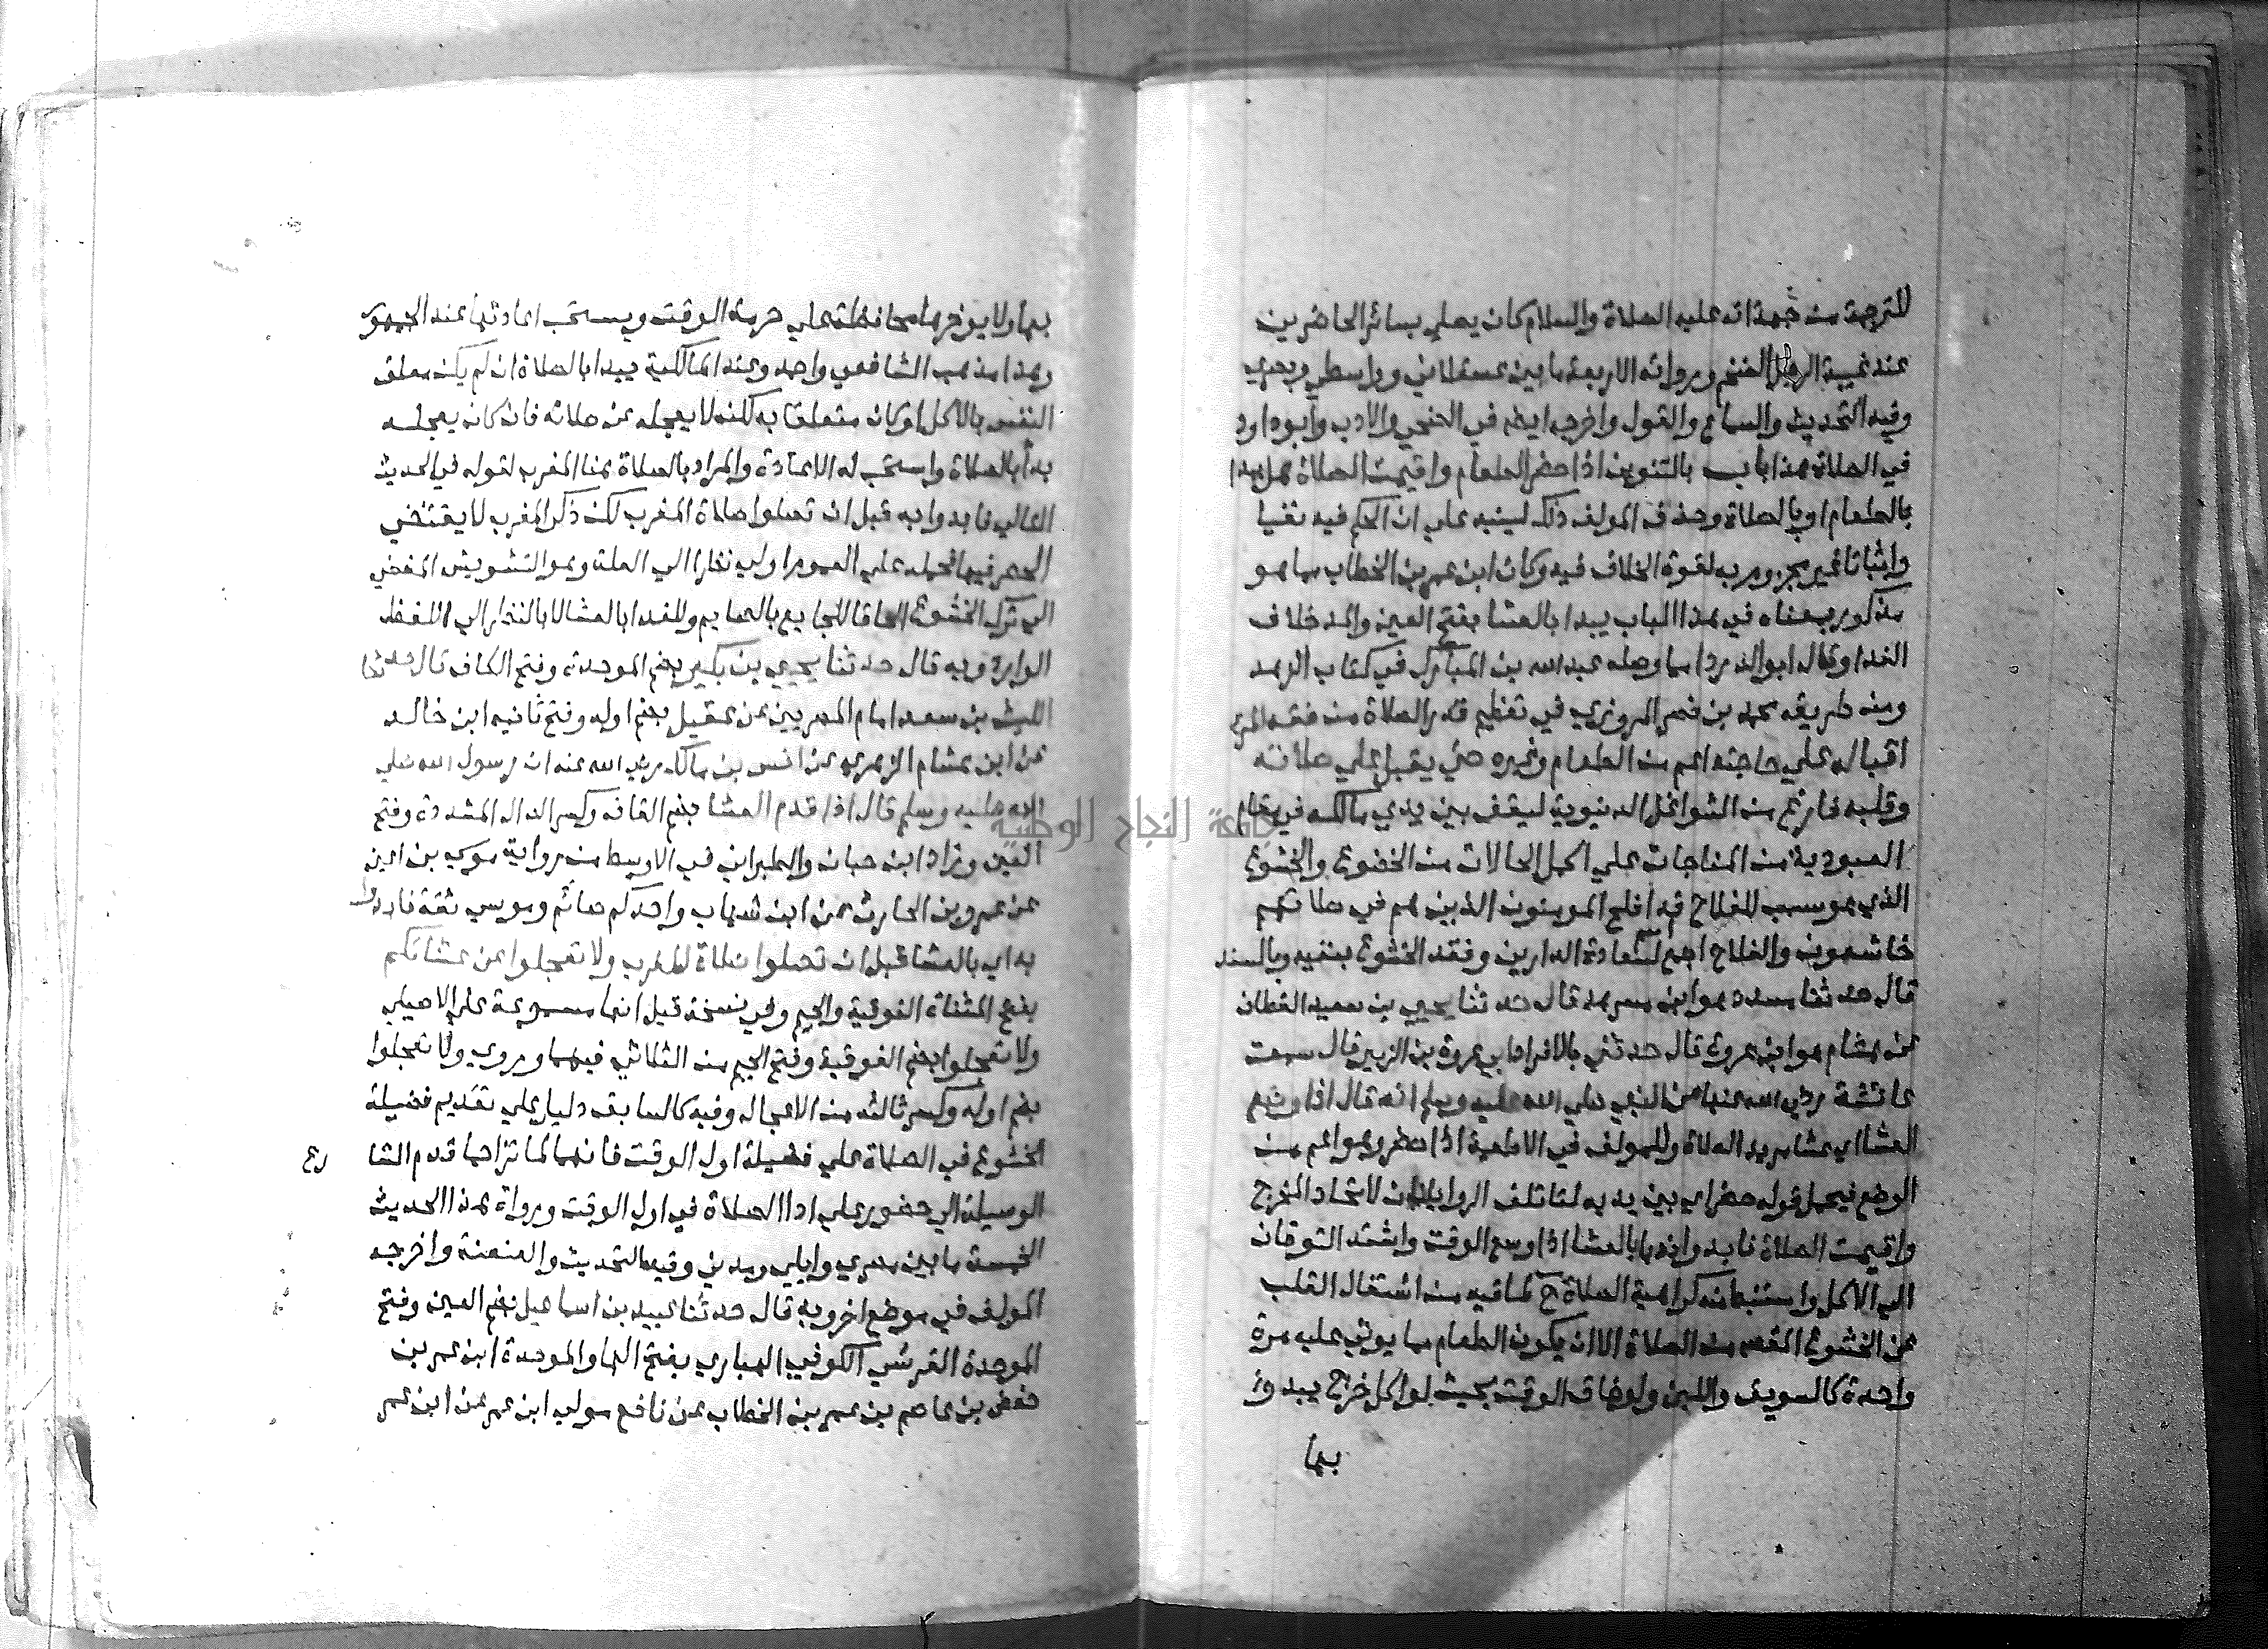 للترجمة من جهة انه عليه الصلاة والسلام كان يصلي بسائر الحاضرين
عند غيبة الرجل الضخم ورواته الاربعة ما بين عسقلاني وواسطي وبصري
وفيه التحديث والسماع والقول واخرجه ايضا في الضحي والادب وابو داود
في الصلاة هذا باب بالتنوين اذا حضر الطعام واقيمت الصلاة هل يبدا
بالطعام او بالصلاة وحذف المولف ذلك لينبه علي ان الحكم فيه نفيا
واثباتا غير مجزوم به لقوة الخلاف فيه وكان ابن عمر بن الخطاب مما هو
مذكور بمعناه في هذا الباب يبدا بالعشا بفتح العين والمد خلاف
الغدا وقال ابو الدرداء مما وصله عبد الله بن المبارك في كتاب الزهد
ومن طريقه محمد بن نصر المروزي في تعظيم قدر الصلاة من فقه المرء
اقباله علي حاجته اعم من الطعام وغيره حتي يقبل علي صلاته
وقلبه فارغ من الشواغل الدنيوية ليقف بين يدي مالكه في مقام
العبودية من المناجات علي اكمل الحالات من الخضوع والخشوع
الذي هو سبب للفلاح قد افلح المومنون الذين هم في صلاتهم
خاشعون والفلاح اجمع لسعادة الدارين وفقد الخشوع ينفيه وبالسند
قال حدثنا مسدد هو ابن مسرهد قال حدثنا يحيي بن سعيد القطان
عن هشام هو ابن عروة قال حدثني بالافراد ابي عروة بن الزبير قال سمعت
عائشة رضي الله عنها عن النبي صلي الله عليه وسلم انه قال اذا وضع
العشا اي عشا مريد الصلاة وللمولف في الاطعمة اذا حضر وهو اعم من
الوضع فيحمل قوله حضر اي بين يديه لتاتلف الروايتان لاتحاد المخرج
واقيمت الصلاة فابدوا ندبا بالعشا اذا وسع الوقت واشتد التوقان
الي الاكل واستنبط منه كراهية الصلاة ح لما فيه من اشتغال القلب
عن الخشوع المقصود من الصلاة الا ان يكون الطعام مما يوتي عليه مرة
واحدة كالسويق واللبن ولو ضاق الوقت بحيث لو اكل خرج يبدوا
بها
بها ولا يوخرها محافظة علي حرمة الوقت ويستحب اعادتها عند الجمهور
وهذا مذهب الشافعي واحمد وعند المالكية يبدا بالصلاة ان لم يكن معلق
النفس بالاكل او كان متعلقا به لكنه لا يعجله عن صلاته فان كان يعجله
بدأ بالطعام واستحب له الاعادة والمراد بالصلاة هنا المغرب لقوله في الحديث
التالي فابدوا به قبل ان تصلوا صلاة المغرب لكن ذكر المغرب لا يقتضي
الحصر فيها فحمله علي العموم اولي نظرا الي العلة وهو التشويش المفضي
الي ترك الخشوع الحاقا للجايع بالصايم وللغدا بالعشا لا بالنظر الي اللفظ
الوارد وبه قال حدثنا يحيي بن بكير بضم الموحدة وفتح الكاف قال حدثنا
الليث بن سعد امام المصريين عن عقيل بضم اوله وفتح ثانيه ابن خالد
عن ابن هشام الزهري عن انس بن مالك رضي الله عنه ان رسول الله صلي
الله عليه وسلم قال اذا قدم العشا بضم القاف وكسر الدال المشددة وفتح
العين وزاد ابن حبان والطبراني في الاوسط من رواية موسي بن اعين
عن عمرو بن الحارث عن ابن شهاب واحدكم صائم وموسي ثقة
به اي بالعشا قبل ان تصلوا صلاة المغرب ولا تعجلوا عن عشائكم
بفتح المثناة الفوقية والجيم وفي نسخة قيل انها مسموعة علي الاصيلي
ولا تعجلوا بضم الفوقية وفتح الجيم من الثلاثي فيهما وروي ولا تعجلوا
بضم اوله وكسر ثالثه من الاعجال وفيه كالسابق دليل علي تقديم فضيلة
الخشوع في الصلاة علي فضيلة اول الوقت فانهما لما تزاحما قدم الشا رع
الوسيلة الي حضور علي ادا الصلاة في اول الوقت ورواة هذا الحديث
الخمسة ما بين مصري وايلي ومدني وفيه التحديث والعنعنة واخرجه
المولف في موضع اخر وبه قال حدثنا عبيد بن اسماعيل بضم العين وفتح
الموحدة القرشي الكوفي الهباري بفتح الها والموحدة ابن عمر بن
حفص بن عاصم بن عمر بن الخطاب عن نافع مولي ابن عمر عن ابن عمر
جامعة النجاح الوطنية